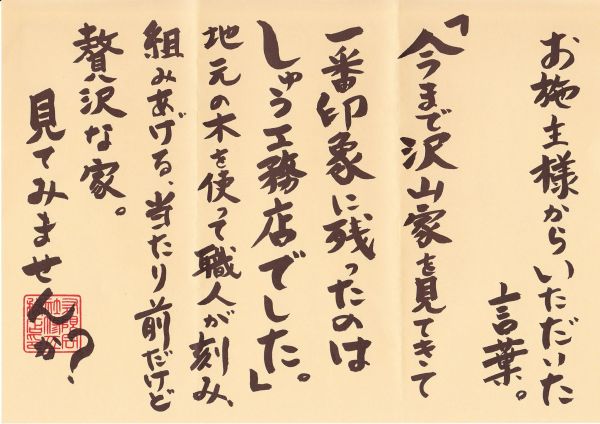 お施主様からいただいた
言葉。
「今まで沢山家を見てきて
一番印象に残ったのは
しゅう工務店でした。」
地元の木を使って職人が刻み、
組みあげる、当たり前だけど
贅沢な家。
見てみませんか?